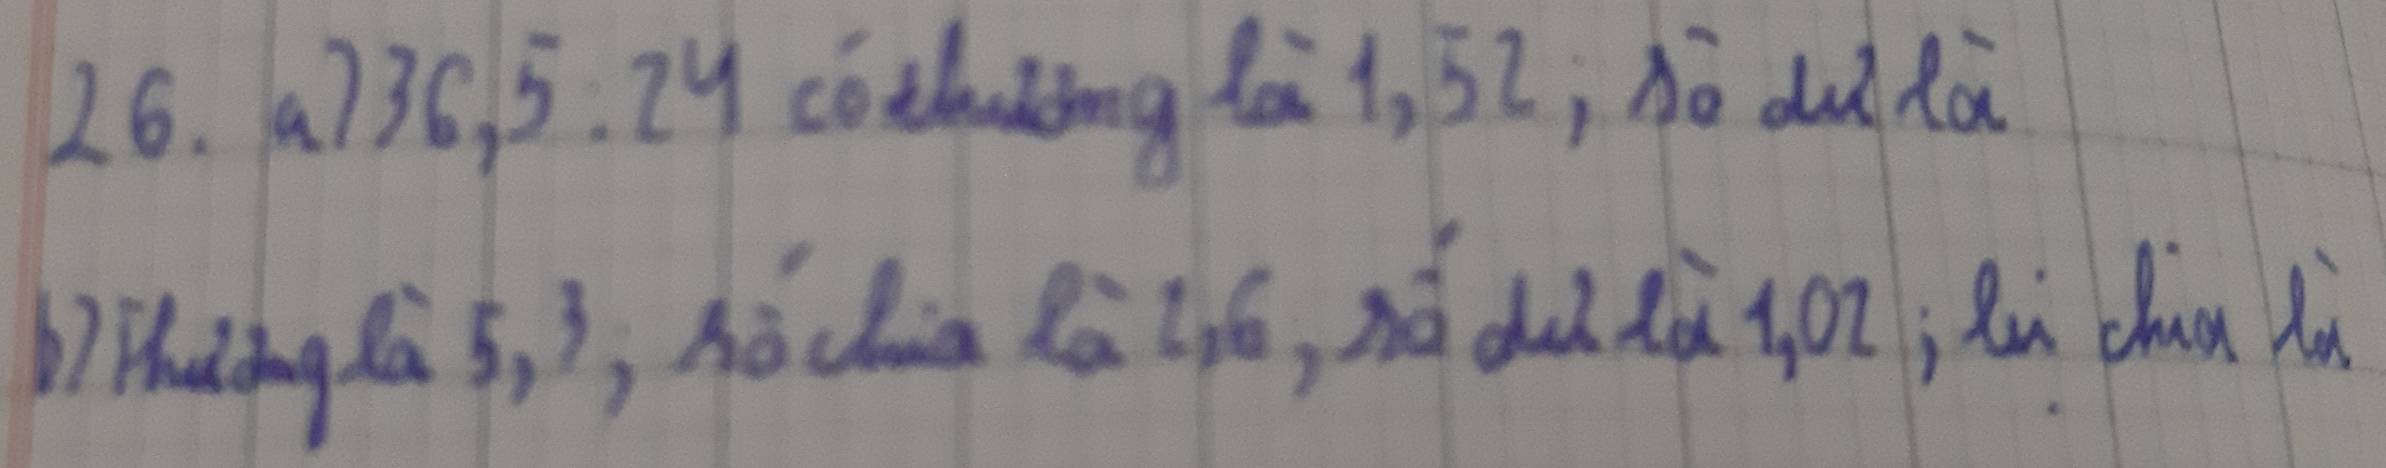 26. a) 36,5 : 24 có thương là 1,52 ; số dư là
b) Thương là 5,3, số chia là 2,6, số dư là 1,02 ; bị chia là